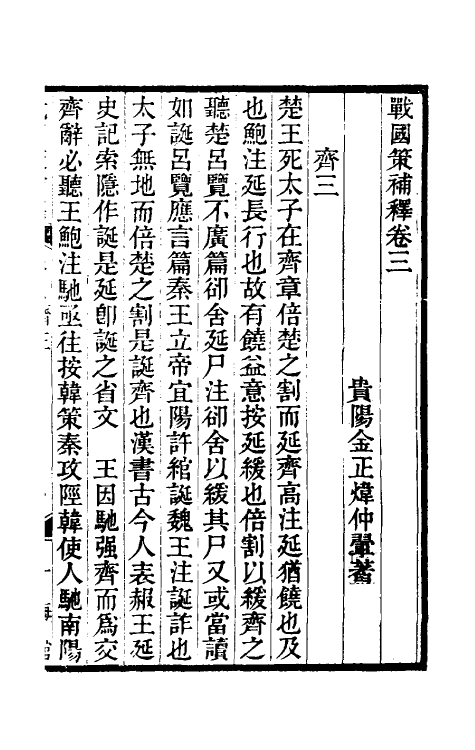 戰國策補釋卷三
貴陽金正煒仲翬著
齊三
楚王死太子在齊章倍楚之割而延齊高注延猶饒也及
也鮑注延長行也故有饒益意按延緩也倍割以緩齊之
聽楚呂覽不廣篇卻舍延尸注卻舍以緩其尸又或當讀
如誕呂覽應言篇秦王立帝宜陽許綰誕魏王注誕詐也
太子無地而倍楚之割是誕齊也漢書古今人表赧王延
史記索隱作誕是延卽誕之省文　王因馳强齊而爲交
齊辭必聽王鮑注馳亟往按韓策秦攻陘韓使人馳南陽